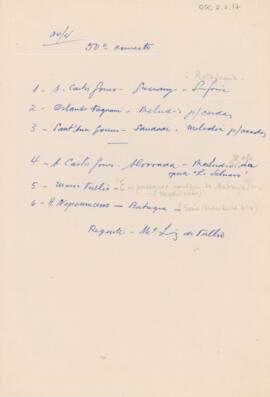 OSC. 2.2.17
50º concerto
1 - A. Carlos Gomes - Guarany - Sinfonia
2 - Orlando Fagnani - Preludio p/cordas
3 - Sant'Anna Gomes - Saudade - Melodia p/cordas
4 - A Carlos Gomes - Alvorada - Preludio da
opera "Lo Schiavo"
5 - "E os passaros
6 - A. Nepomuceno - Batuque - (Serie Brasileira nº 4)
Regente - Mº Luiz de Tullio